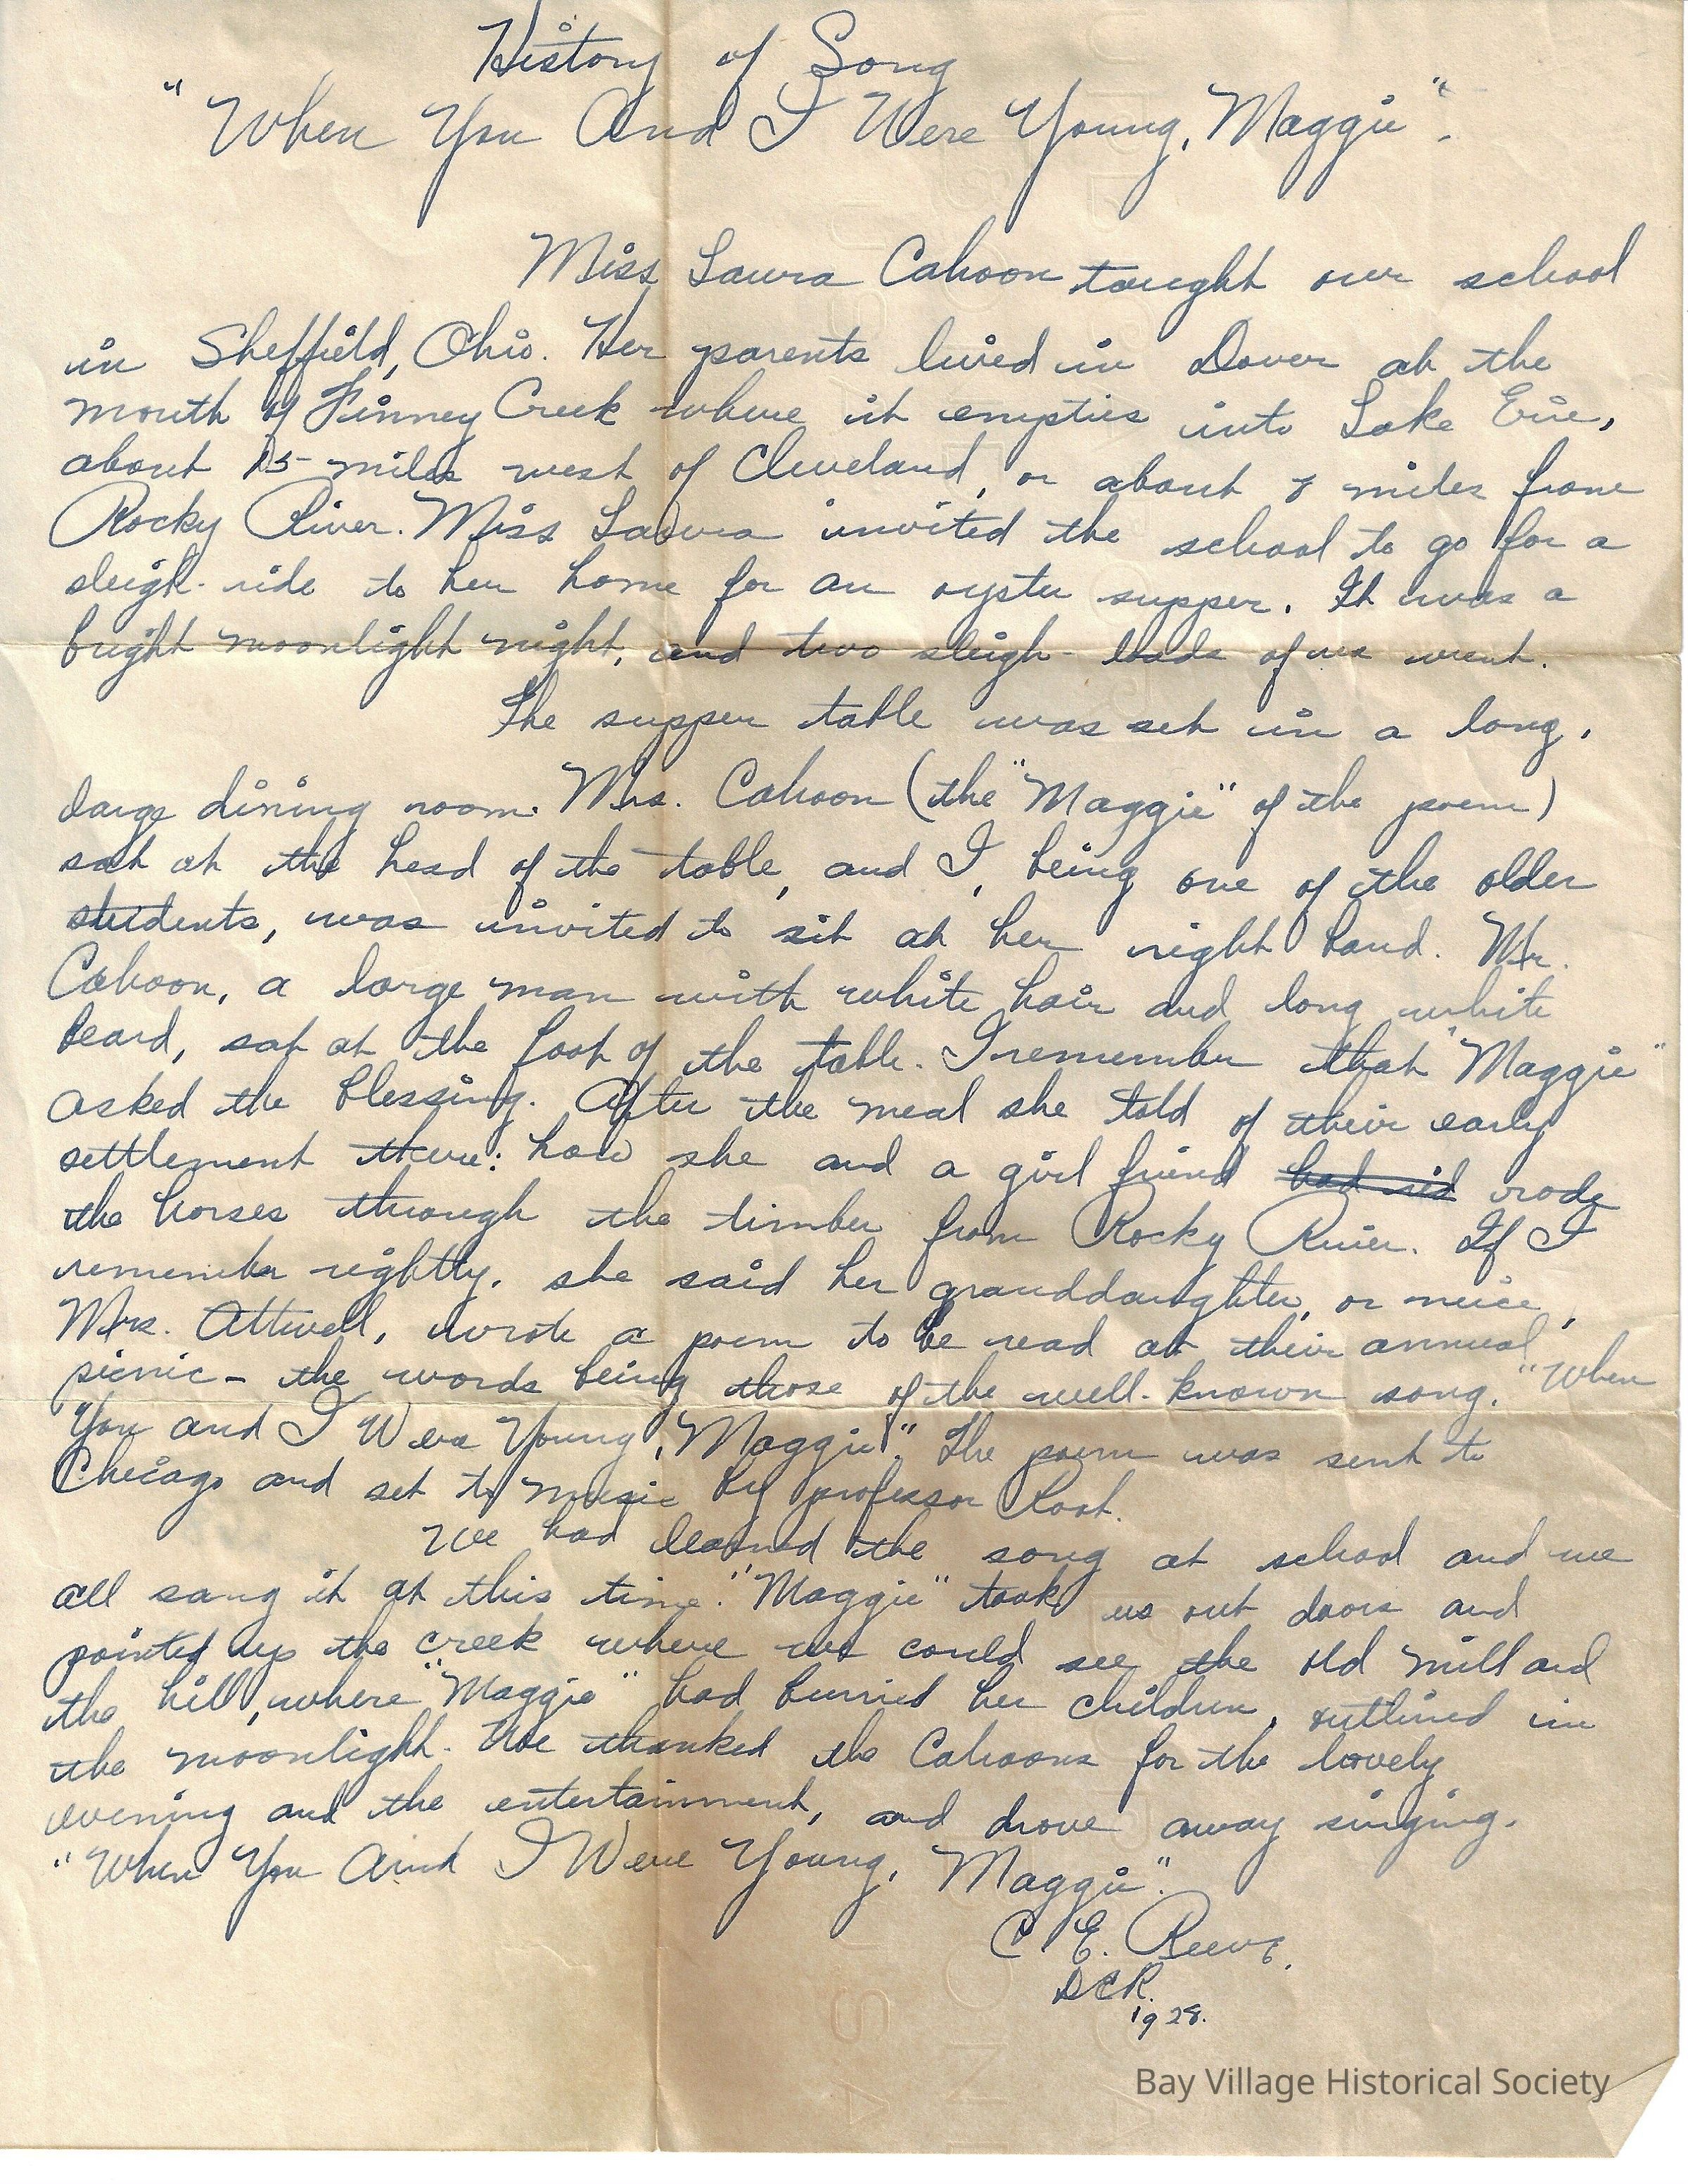 History of Song
"When You And I Were Young, Maggie".
Miss Laura Cahoon taught our school
in Sheffield, Ohio. Her parents lived in Dover at the
mouth of Finney Creek where it empties into Lake Erie,
about 15 miles west of Cleveland, or about 8 miles from
Rocky River. Miss Laura invited the school to go for a
sleigh-ride to her home for an oyster supper. It was a
bright moonlight night, and two sleigh-loads of us went.
The supper table was set in a long,
large dining room. Mrs. Cahoon (the "Maggie" of the poem)
sat at the head of the table, and I, being one of the older
students, was invited to sit at her right hand. Mr.
Cahoon, a large man with white hair and long white
beard, sat at the foot of the table. I remember that "Maggie"
asked the blessing. After the meal she told of their early
settlement there: how she and a girl friend had rid rode
the horses through the timber from Rocky River. If I
remember rightly, she said her granddaughter, or neice,
Mrs. Attwell, wrote a poem to be read at their annual
picnic - the words being those of the well-known song, "When
You and I Were Young, Maggie". The poem was sent to
Chicago and set to music by professor Root.
We had learned the song at school and we
all sang it at this time. "Maggie" took us out doors and
pointed up the creek where we could see the old mill and
the hill, where "Maggie" had burried her children, outlined in
the moonlight. We thanked the Cahoons for the lovely
evening and the entertainment, and drove away singing,
"When You And I Were Young, Maggie".
C. E. Reeve.
DCR.
1928.
Bay Village Historical Society